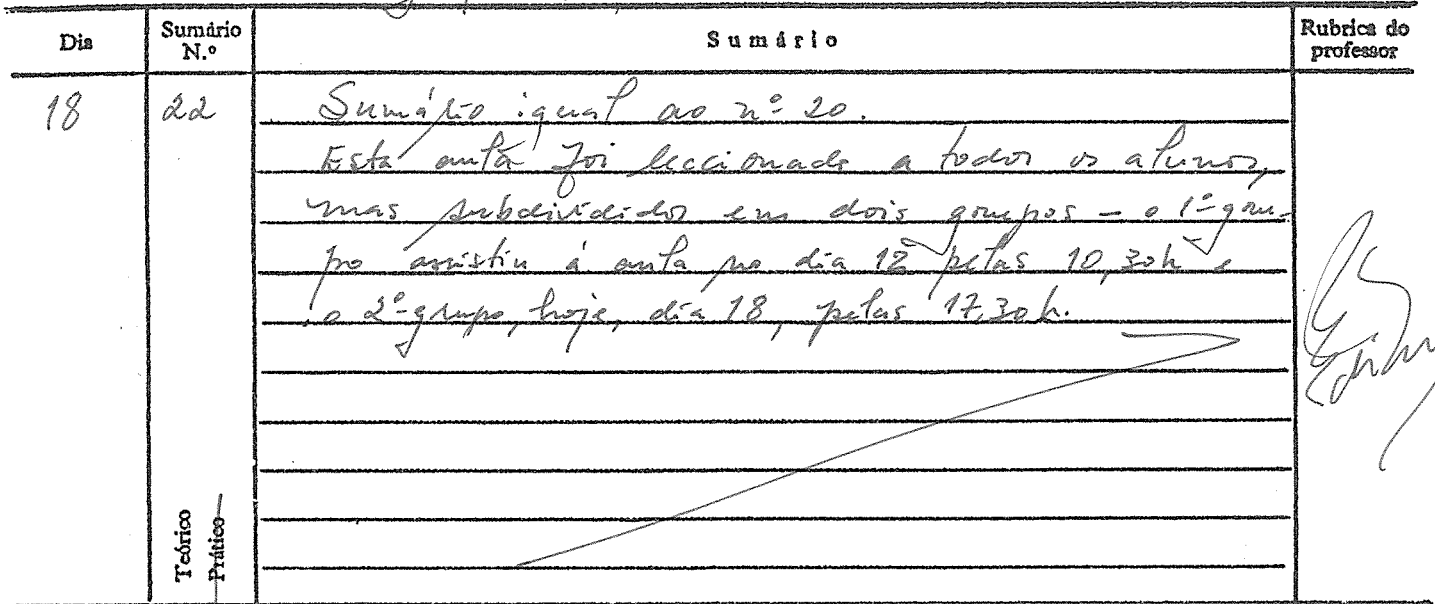 Dia Sumário N.º Sumário Rubrica do professor
18 22 Sumário igual ao nº 20.
Esta aula foi leccionada a todos os alunos,
mas subdivididos em dois grupos - o 1º gru-
po assistiu à aula no dia 12 pelas 10,30h e
o 2º grupo, hoje, dia 18, pelas 17,30h.
Teórico
Prático